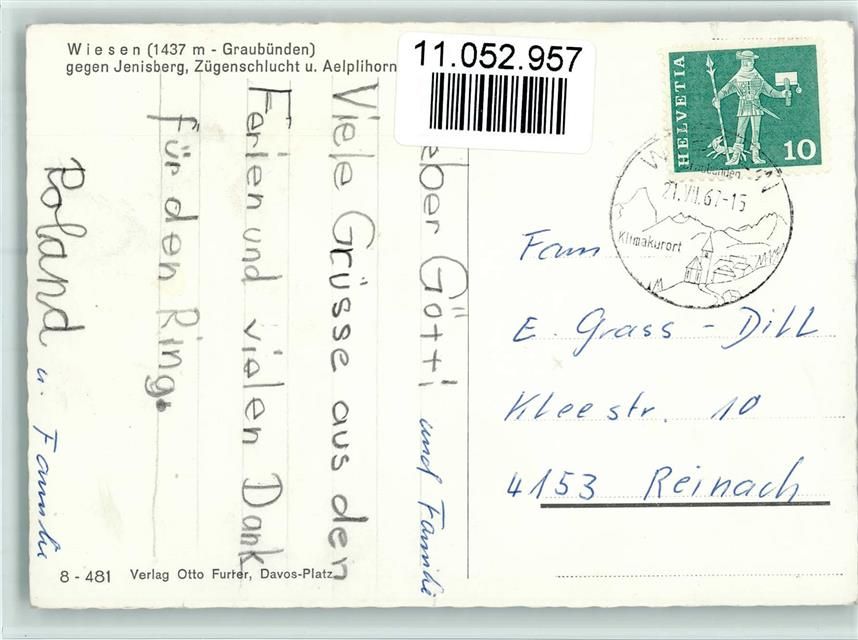 Wiesen (1437 m - Graubünden)
gegen Jenisberg, Zügenschlucht u. Aelplihorn
11.052.957
HELVETIA
10
21.VII.67-15
Klimakurort
eber Götti und Familie
Viele Grüsse aus den
Ferien und vielen Dank
für den Ring.
Roland u. Familie
Fam
E. Grass - Dill
Kleestr. 10
4153 Reinach
8 - 481 Verlag Otto Furter, Davos-Platz